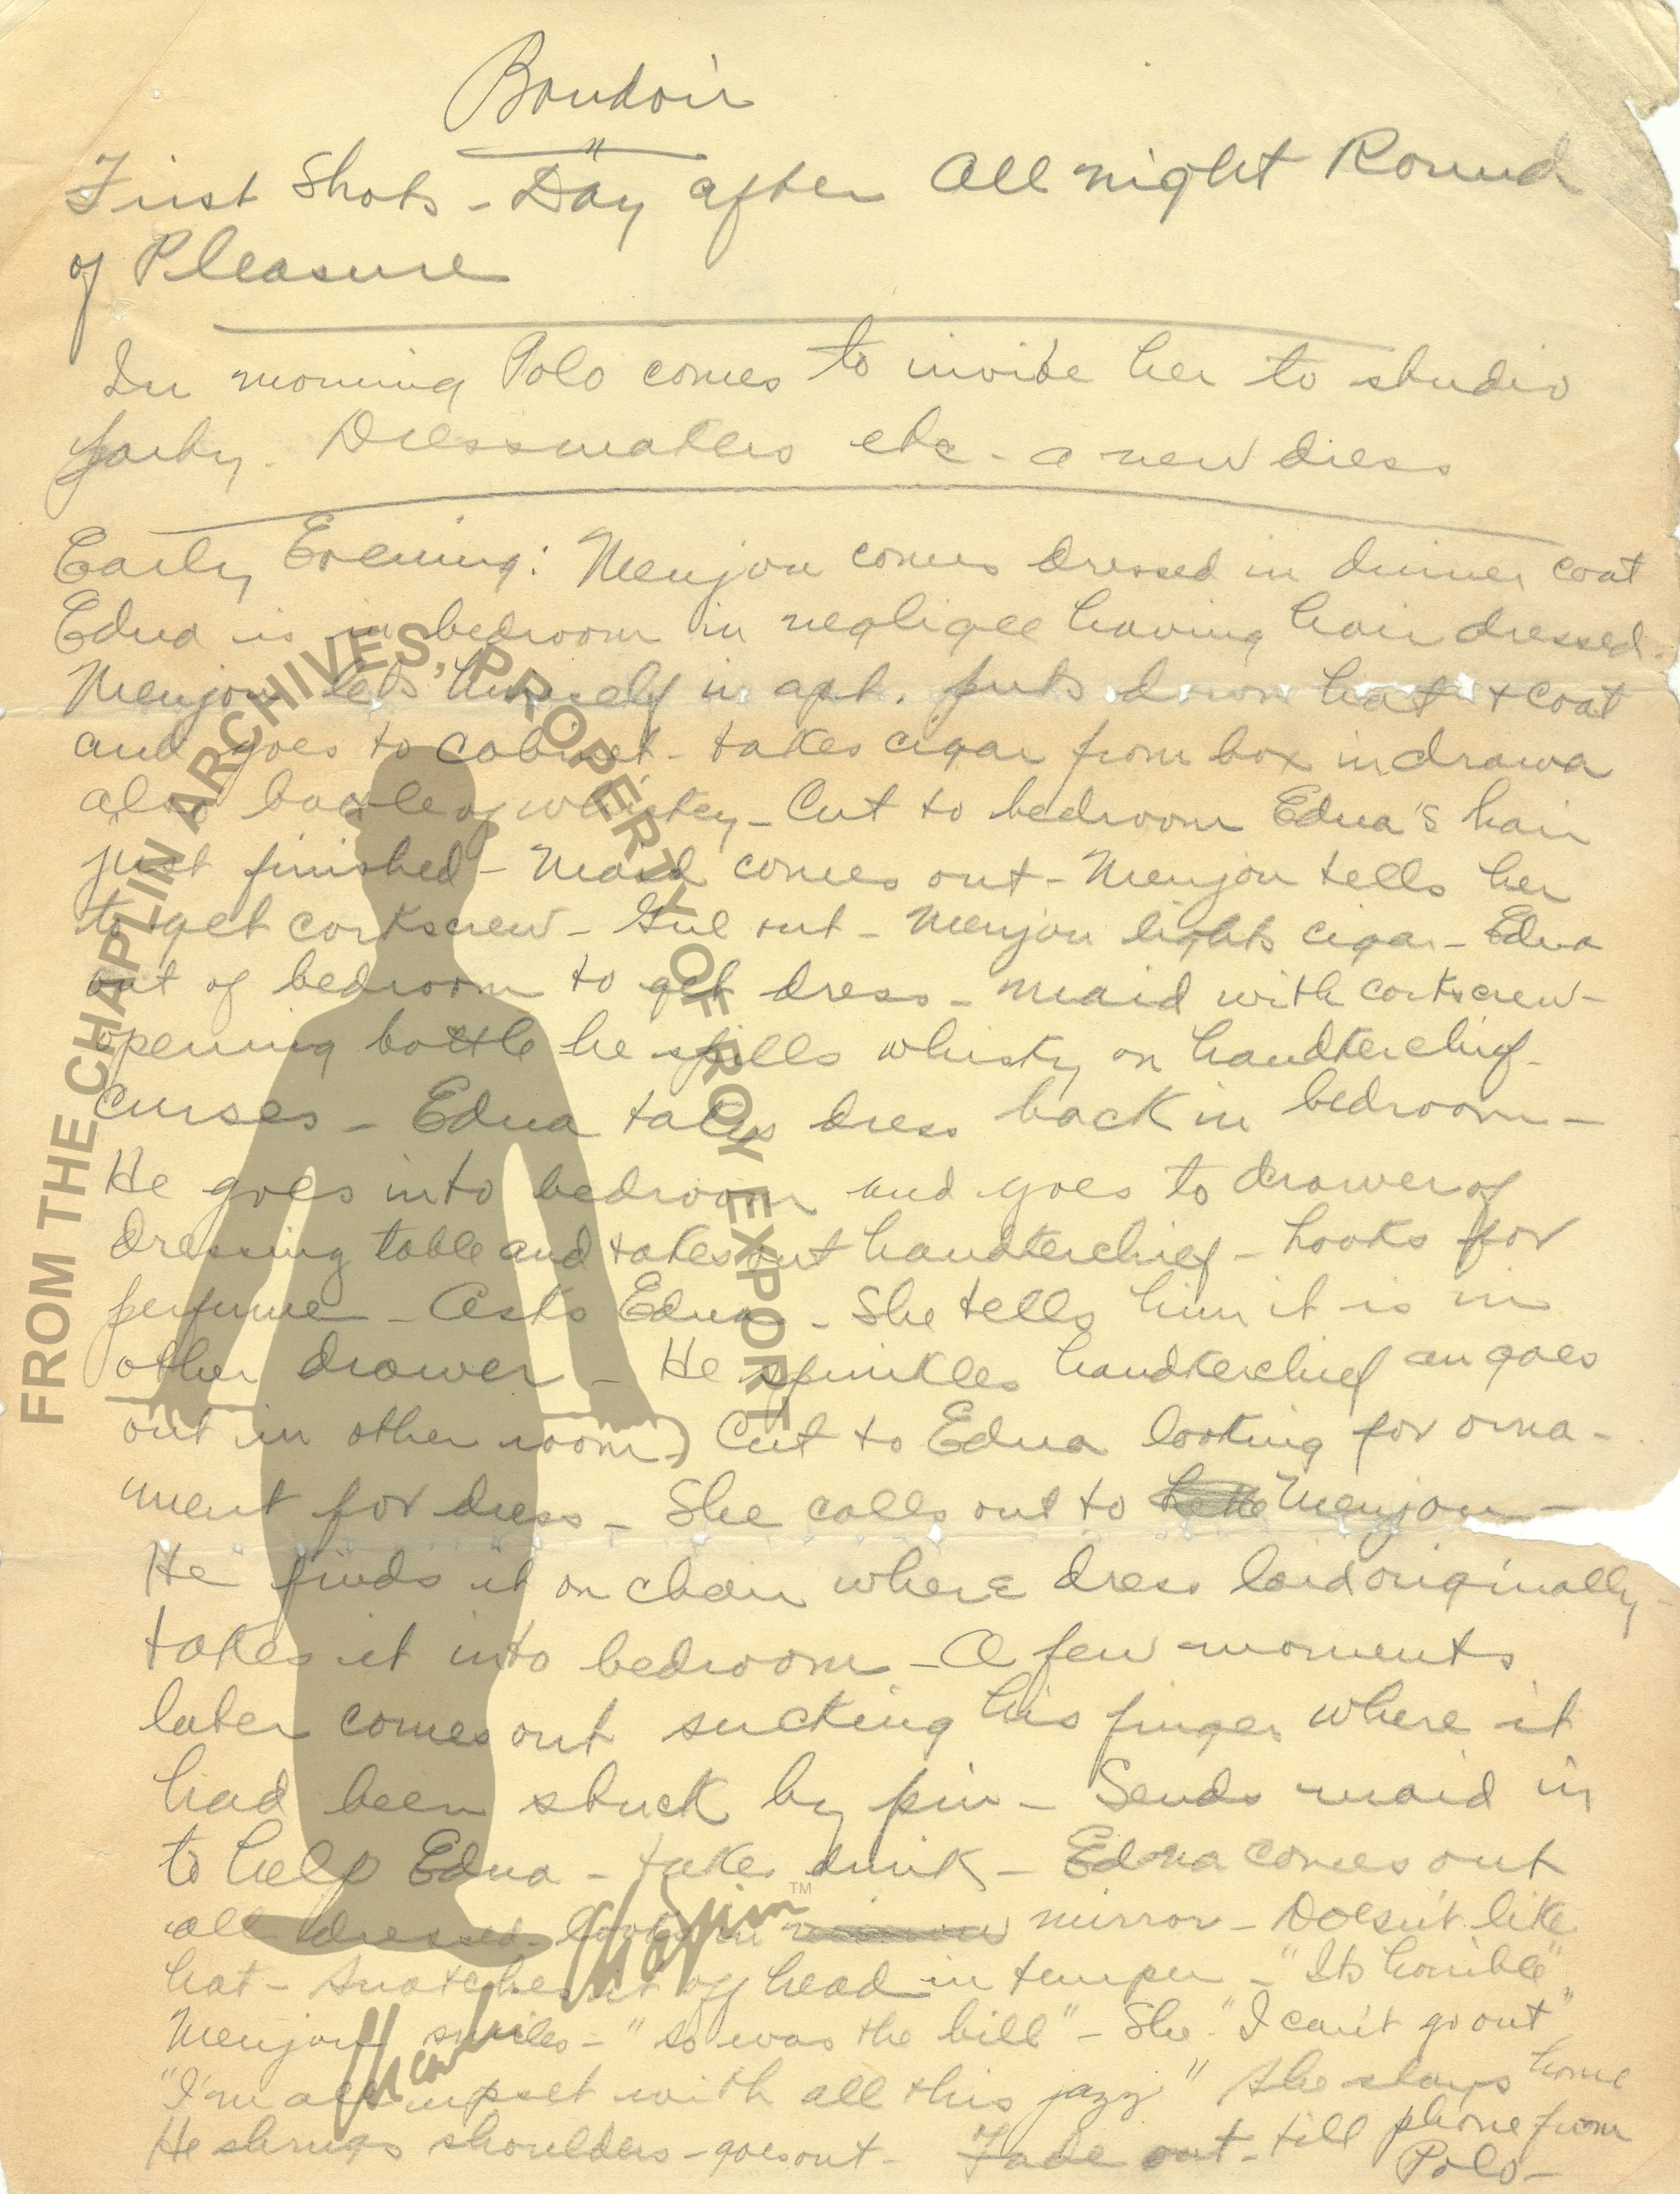 Boudoir
First Shots - Day after All night Round
of Pleasure
In morning Polo comes to invite her to studio
party. Dressmakers etc - a new dress
Early Evening: Menjou comes dressed in dinner coat
Edna is in bedroom in negligee having hair dressed.
Menjou lets himself in apt. puts down hat + coat
and goes to cabinet - takes cigar from box in drawa
also bottle of whiskey - Cut to bedroom Edna's hair
just finished - Maid comes out - Menjou tells her
to get corkscrew - Girl out - Menjou lights cigar - Edna
out of bedroom to get dress - maid with corkscrew -
opening bottle he spills whisky on handkerchief -
curses - Edna takes dress back in bedroom -
He goes into bedroom and goes to drawer of
dressing table and takes out handkerchief - Looks for
perfume - Asks Edna - She tells him it is in
other drawer - He sprinkles handkerchief an goes
out in other room) Cut to Edna looking for orna-
ment for dress - She calls out to Menjou -
He finds it on chair where dress laid originally -
takes it into bedroom - A few moments
later comes out sucking his finger where it
had been stuck by pin - Sends maid in
to help Edna - takes drink - Edna comes out
all dressed - looks in mirror - Doesn't like
hat - snatches it off head in temper - "Its horrible".
Menjou smiles - "so was the bill" - She "I can't go out"
"I'm all upset with all this jazz" She stays home
He shrugs shoulders - goes out - Fade out - till phone from
Polo -
FROM THE CHAPLIN ARCHIVES, PROPERTY OF ROY EXPORT
Charlie Chaplin™